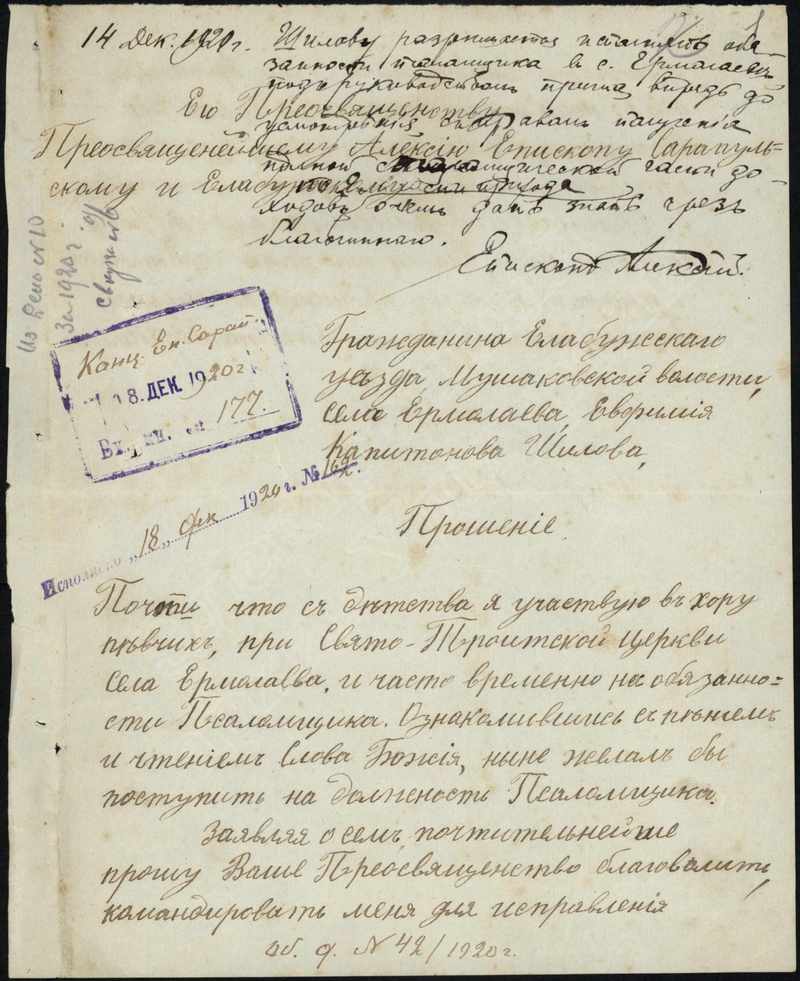 14 Дек. 1920 г. Шилову разрѣшается исполнять обя-
занности псаломщика в с. Ермолаевѣ
подъ руководствомъ причта, впредь до
усмотрѣнія, съ правомъ полученія
полной псаломщической части до-
ходовъ, о чемъ дать знать чрезъ
благочиннаго.
Епископъ Алексій.
Его Преосвященству
Преосвященнѣйшему Алексію Епископу Сарапуль-
скому и Елабужскому
Из дела № 10
За 1920 г.
Канц. Еп. Сарап.
18 ДЕК. 1920 г.
Вх. 177.
Исполнено „18„ Дек 1920 г. № 162.
Гражданина Елабужскаго
уѣзда, Мушаковской волости,
села Ермолаева, Евфимія
Капитонова Шилова,
Прошеніе.
Почти что съ дѣтства я участвую въ хору
пѣвчихъ, при Свято-Троитской церкви
села Ермолаева, и часто временно на обязанно-
сти Псаломщика. Ознакомившись съ пѣніемъ
и чтеніемъ Слова Божія, ныне желалъ бы
поступить на должность Псаломщика.
Заявляя о семъ, почтительнейше
прошу Ваше Преосвященство благоволить,
командировать меня для исправленія
об. д. № 42/1920 г.